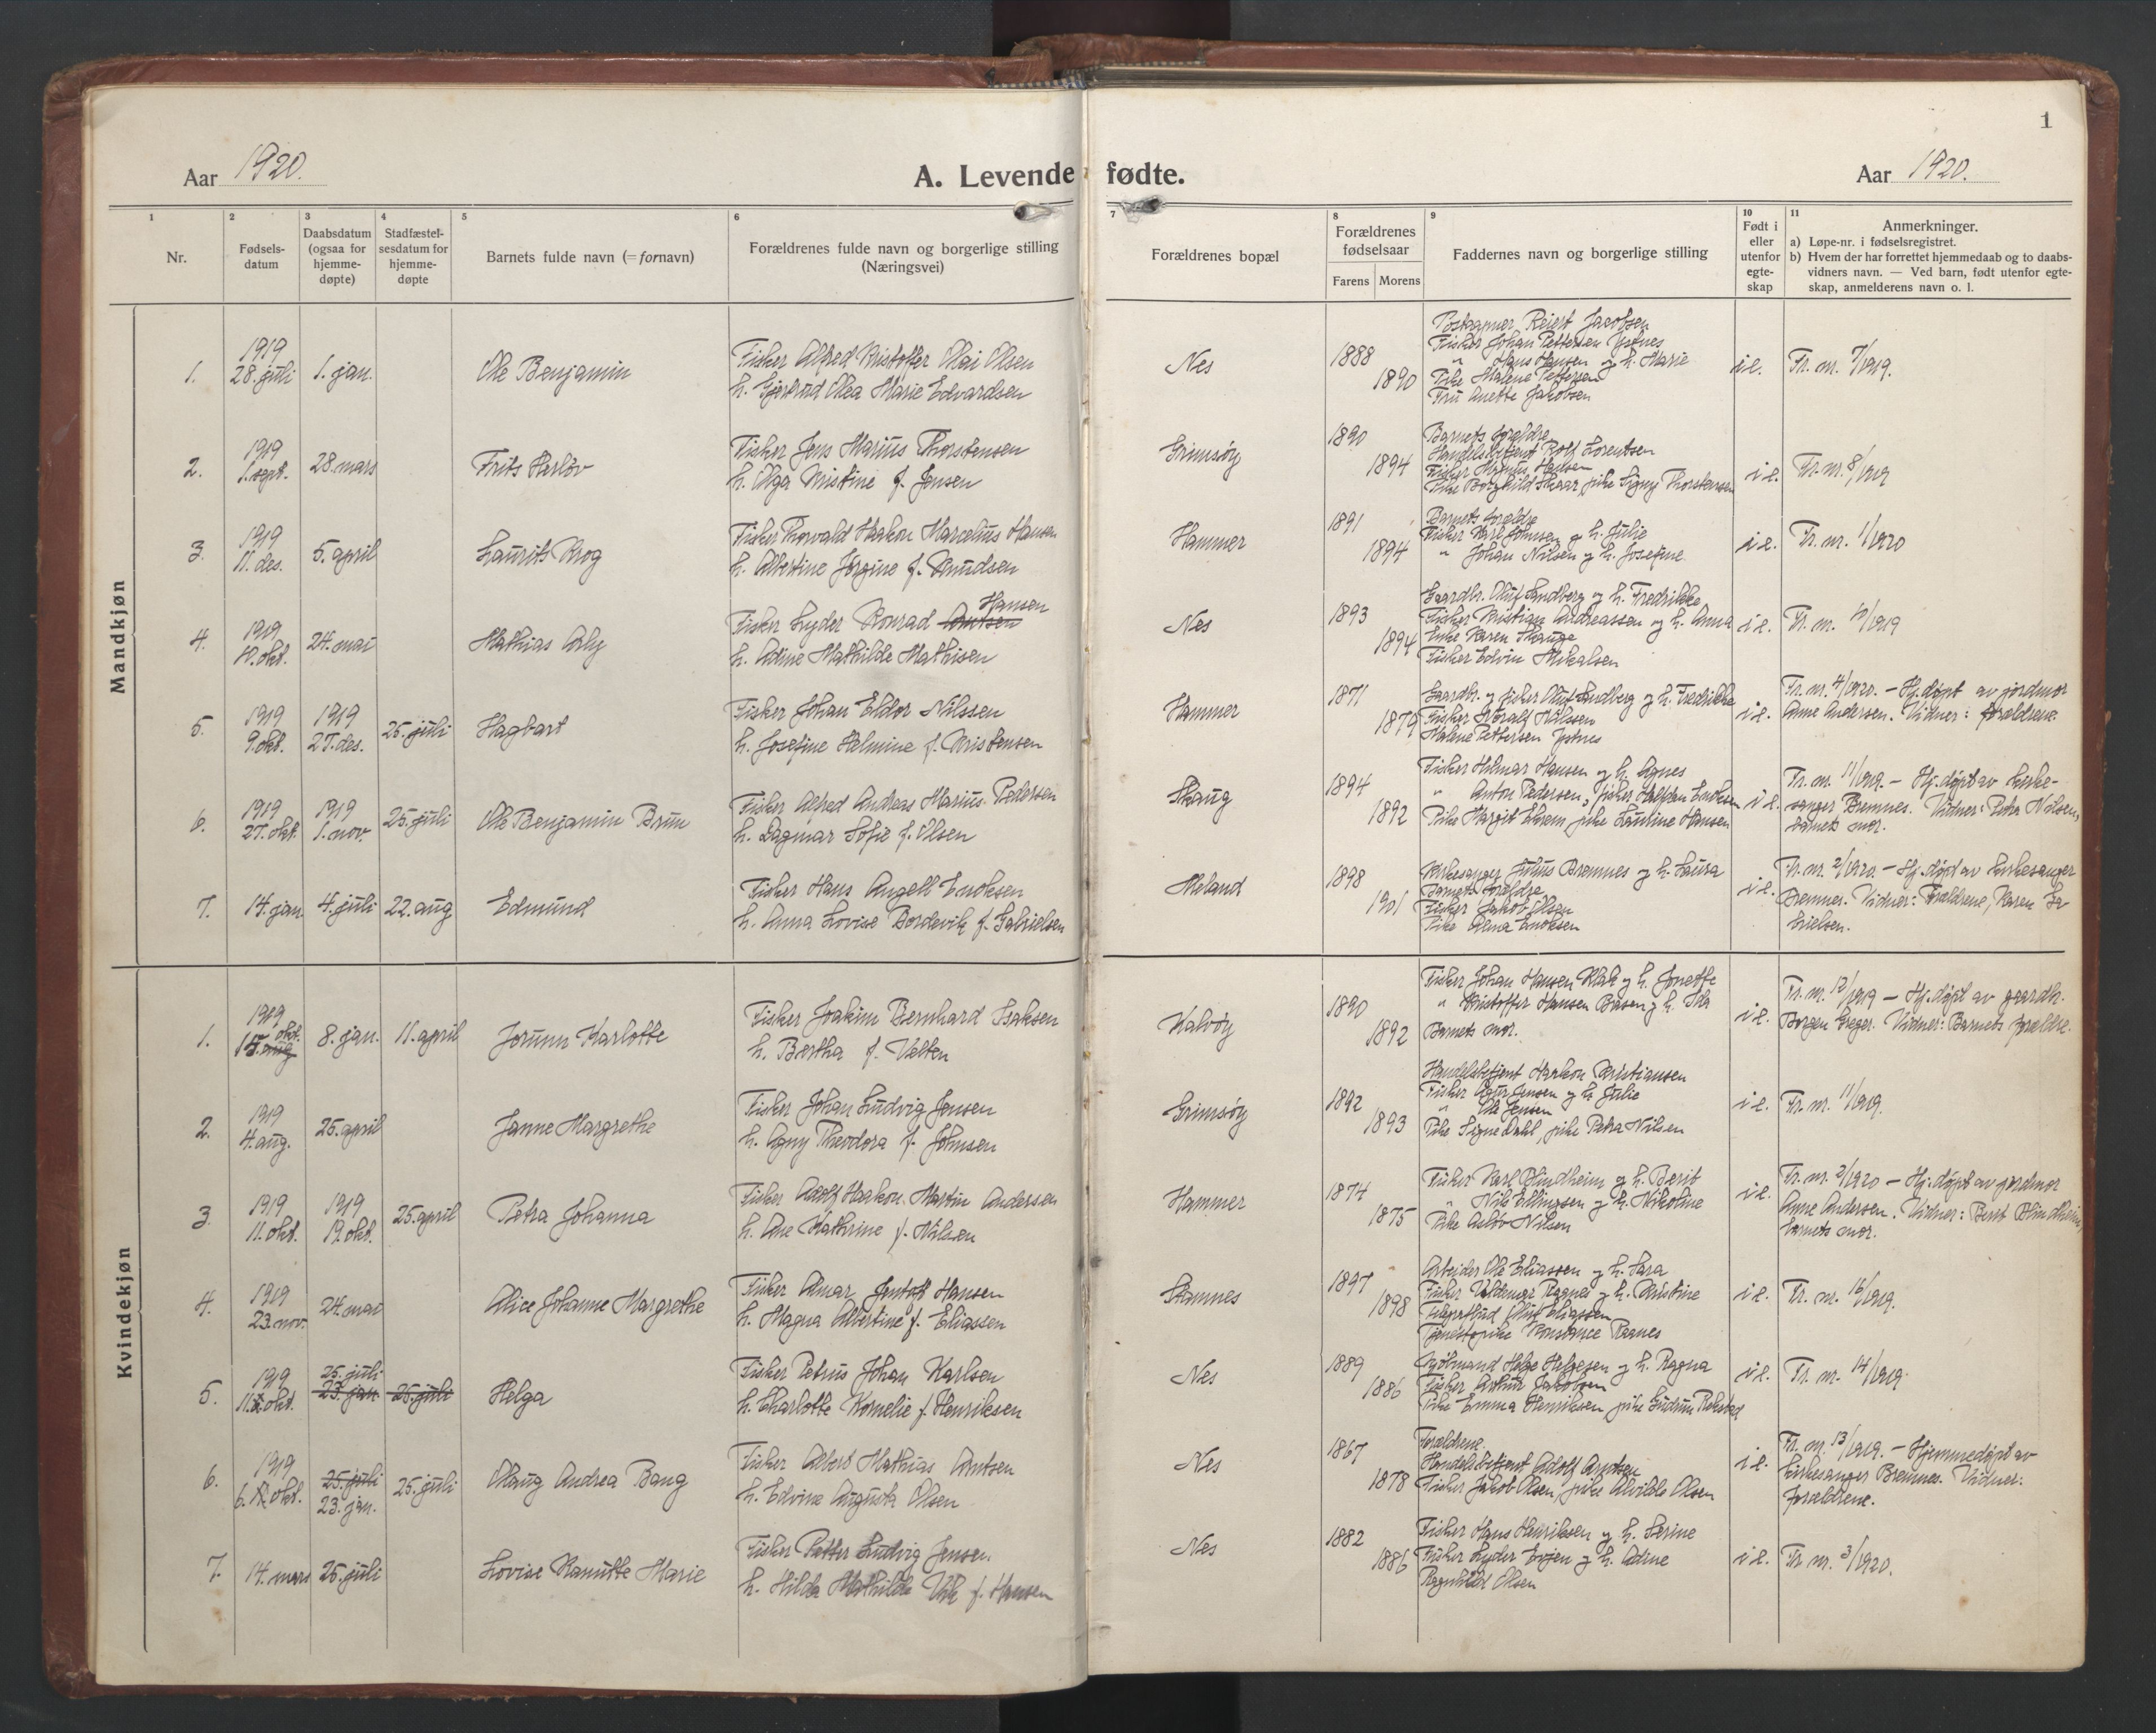 1
Aar 1920.
A. Levende fødte.
Aar 1920.
1 2 3 4 5 6 7 8 9 10 11
Nr.
Fødsels-
datum
Daabsdatum
(ogsaa for
hjemme-
døpte)
Stadfæstel-
sesdatum for
hjemme-
døpte
Barnets fulde navn (= fornavn)
Forældrenes fulde navn og borgerlige stilling
(Næringsvei)
Forældrenes bopæl
Forældrenes
fødselsaar
Farens Morens
Faddernes navn og borgerlige stilling
Født i
eller
utenfor
egte-
skap
Anmerkninger.
a) Løpe-nr. i fødselsregistret.
b) Hvem der har forrettet hjemmedaab og to daabs-
vidners navn. — Ved barn, født utenfor egte-
skap, anmelderens navn o. l.
Mandkjøn
1.
1919
28. juli
1. jan.
Ole Benjamin
Fisker Alfred Kristoffer Olai Olsen
h. Gjertrud Olea Marie Edvardsen
Nes
1888
1890
Reiert Jacobsen
Fisker Johan Pettersen Ystnes
" Hans Hansen og h. Marie
Pike Malene Pettersen
Fru Anette Jakobsen
i e.
Fr. nr. 7/1919.
2.
1919
1. sept.
28. mars
Frits Harløv
Fisker Jens Marius Thorstensen
h. Olga Kristine f. Jensen
Grimsøy
1890
1894
Barnets forældre
Handelsbetjent Rolf Lorentsen
Fisker Hansen
Pike Borghild Skaar, pike Signy Thorstensen
i e.
Fr. nr. 8/1919
3.
1919
11. des.
5. april
Laurits Krog
Fisker Thorvald Haakon Marcelius Hansen
h. Albertine Jørgine f. Knudsen
Hammer
1891
1894
Barnets forældre
Fisker Karl Johnsen og h. Julie
" Johan Nilsen og h. Josefine
i e.
Fr. nr. 1/1920
4.
1919
10. okt.
24. mai
Mathias Arly
Hansen
Fisker Lyder Konrad Arntsen
h. Adine Mathilde Mathisen
Nes
1893
1894
Gaardbr. Oluf Sandberg og h. Fredrikke
Fisker Kristian Andreassen og h. Anna
Enke Karen Skauge
Fisker Edvin Mikalsen
i e.
Fr. nr. 10/1919
5.
1919
9. okt.
1919
27. des.
25. juli
Hagbart
Fisker Johan Eldor Nilssen
h. Josefine Helmine f. Kristensen
Hammer
1871
1879
Gaardbr. og fisker Oluf Sandberg og h. Fredrikke
Fisker Harald Nilssen
Malene Pettersen Ystnes
i e.
Fr. nr. 4/1920. — Hj. døpt av jordmor
Anne Andersen. Vidner: forældrene.
6.
1919
27. okt.
1919
1. nov.
25. juli
Ole Benjamin Brun
Fisker Alfred Andreas Marius Pedersen
h. Dagmar Sofie f. Olsen
Skaug
1894
1892
Fisker Hilmar Hansen og h. Agnes
" Anton Pedersen, fisker Halfdan Enoksen
Pike Margit Ekrem, pike Lautine Hansen
i e.
Fr. nr. 11/1919. — Hj. døpt av kirke-
sanger Bremnes. Vidner: Petra Nilsen,
barnets mor.
7.
14. jan.
4. juli
22. aug
Edmund
Fisker Hans Angell Enoksen
h. Anna Lovise Bordevik f. Gabrielsen
Meland
1898
1901
Kirkesanger Julius Bremnes og h. Laura
Barnets forældre
Fisker Jakob Olsen
Pike Alma Enoksen
i e.
Fr. nr. 2/1920. — Hj. døpt av kirkesanger
Bremnes. Vidner: Forældrene, Karen Ga-
brielsen.
Kvindekjøn
1.
1919
okt.
15. aug
8. jan.
11. april
Jorunn Karlotte
Fisker Joakim Bernhard Isaksen
h. Bertha f. Valten
Kalvøy
1890
1892
Fisker Johan Hansen Klak og h. Jonette
" Kristoffer Hansen og h. Ida
Barnets mor.
i e.
Fr. nr. 12/1919 — Hj. døpt av gaardb.
Borgen Greger. Vidner: Barnets forældre.
2.
1919
4. aug.
25. april
Janne Margrethe
Fisker Johan Ludvig Jensen
h. Agny Theodora f. Johnsen
Grimsøy
1892
1893
Handelsbetjent Haakon Kristiansen
Fisker Jensen og h. Julie
" Ole Jensen
Pike Signe Dahl, pike Petra Nilsen
i e.
Fr. nr. 11/1919.
3.
1919
11. okt.
1919
19. okt.
25. april
Petra Johanna
Fisker Adolf Haakon Martin Andersen
h. Ane Kathrine f. Nilsen
Hammer
1874
1875
Fisker Karl Blindheim og h. Berit
" Nils Ellingsen og h. Nikoline
Pike Asløv Nilsen
i e.
Fr. nr. 2/1920 — Hj. døpt av jordmor
Anne Andersen. Vidner: Berit Blindheim,
barnets mor.
4.
1919
23. nov.
24. mai
Alice Johanne Margrethe
Fisker Almar Jentoft Hansen
h. Magna Albertine f. Eliassen
Stamnes
1897
1898
Arbeider Ole Eliassen og h. Sara
Fisker Valdemar Raanes og h. Kristine
Telegrafbud Oluf Eliassen
Tjenestepike Konstance Raanes
i e.
Fr. nr. 16/1919.
5.
1919
11. okt.
25. juli
23. jan.
25. juli
Helga
Fisker Petrus Johan Karlsen
h. Charlotte Kornelie f. Henriksen
Nes
1889
1886
Sjømand Helge Helgesen og h. Ragna
Fisker Arthur Jakobsen
Pike Emma Henriksen, pike Gudrun Rekstad
i e.
Fr. nr. 14/1919.
6.
1919
6. okt.
25. juli
23. jan.
25. juli
Olaug Andrea Bang
Fisker Albert Mathias Arntsen
h. Edvine Augusta Olsen
Nes
1867
1878
Forældrene.
Handelsbetjent Adolf Arntsen
Fisker Jakob Olsen, pike Alvilde Olsen
i e.
Fr. nr. 13/1919. — Hjemmedøpt av
kirkesanger Bremnes. Vidner:
forældrene.
7.
14. mars
25. juli
Lovise Ranutte Marie
Fisker Petter Ludvig Jensen
h. Hilda Mathilde Vik f. Hansen
Nes
1882
1886
Fisker Hans Henriksen og h. Serine
Fisker Lyder Evjen og h. Adine
Ragnhild Olsen
i e.
Fr. nr. 3/1920.